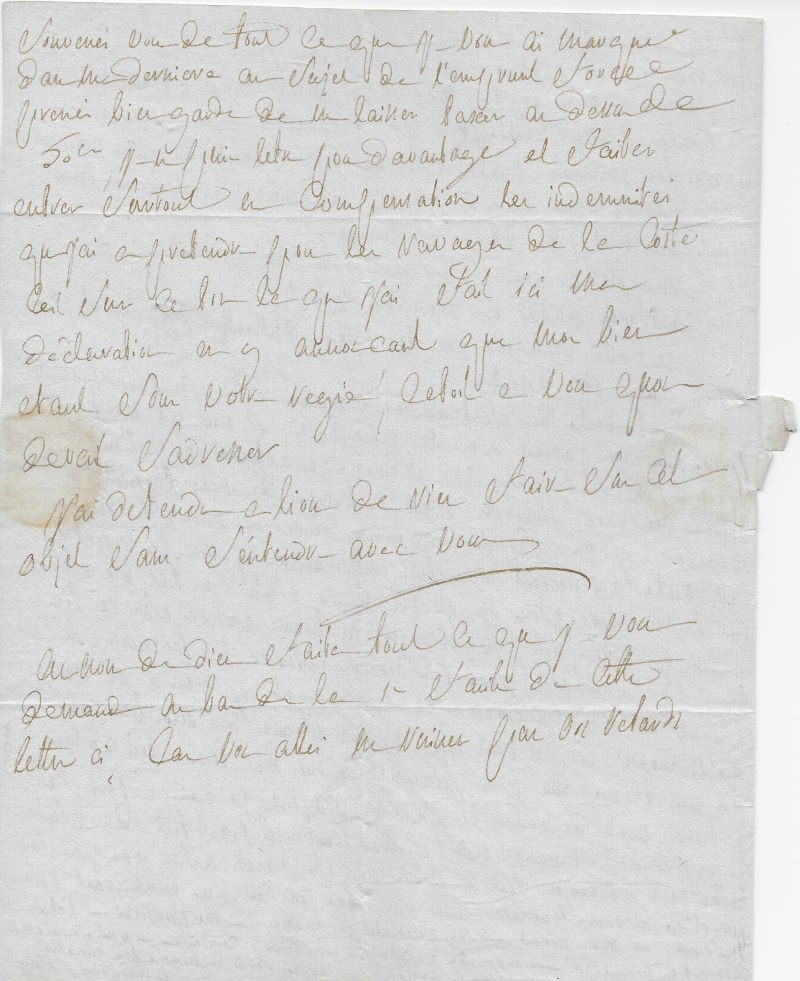 Souvenés vous de tout ce que je vous ai marqué
dans ma derniere au sujet de l'emprunt forcé
prenés bien garde de me laisser taxer au dessus de
50 je ne puis letre pour davantage et faites
entrer surtout en compensation les indemnites
que j'ai a pretendre pour les ravages de la Coste
cest sur ce ton la que j'ai fait ici ma
déclaration en y annoncant que mon bien
etant sous votre regie, cetoit a vous quon
devoit s'adresser
j'ai defendu a lion de rien faire sur cet
objet sans s'entendre avec vous
au nom de dieu faites tout ce que je vous
demande au bas de la 1re de cette
lettre ci, car vous allés me ruiner par vos retards